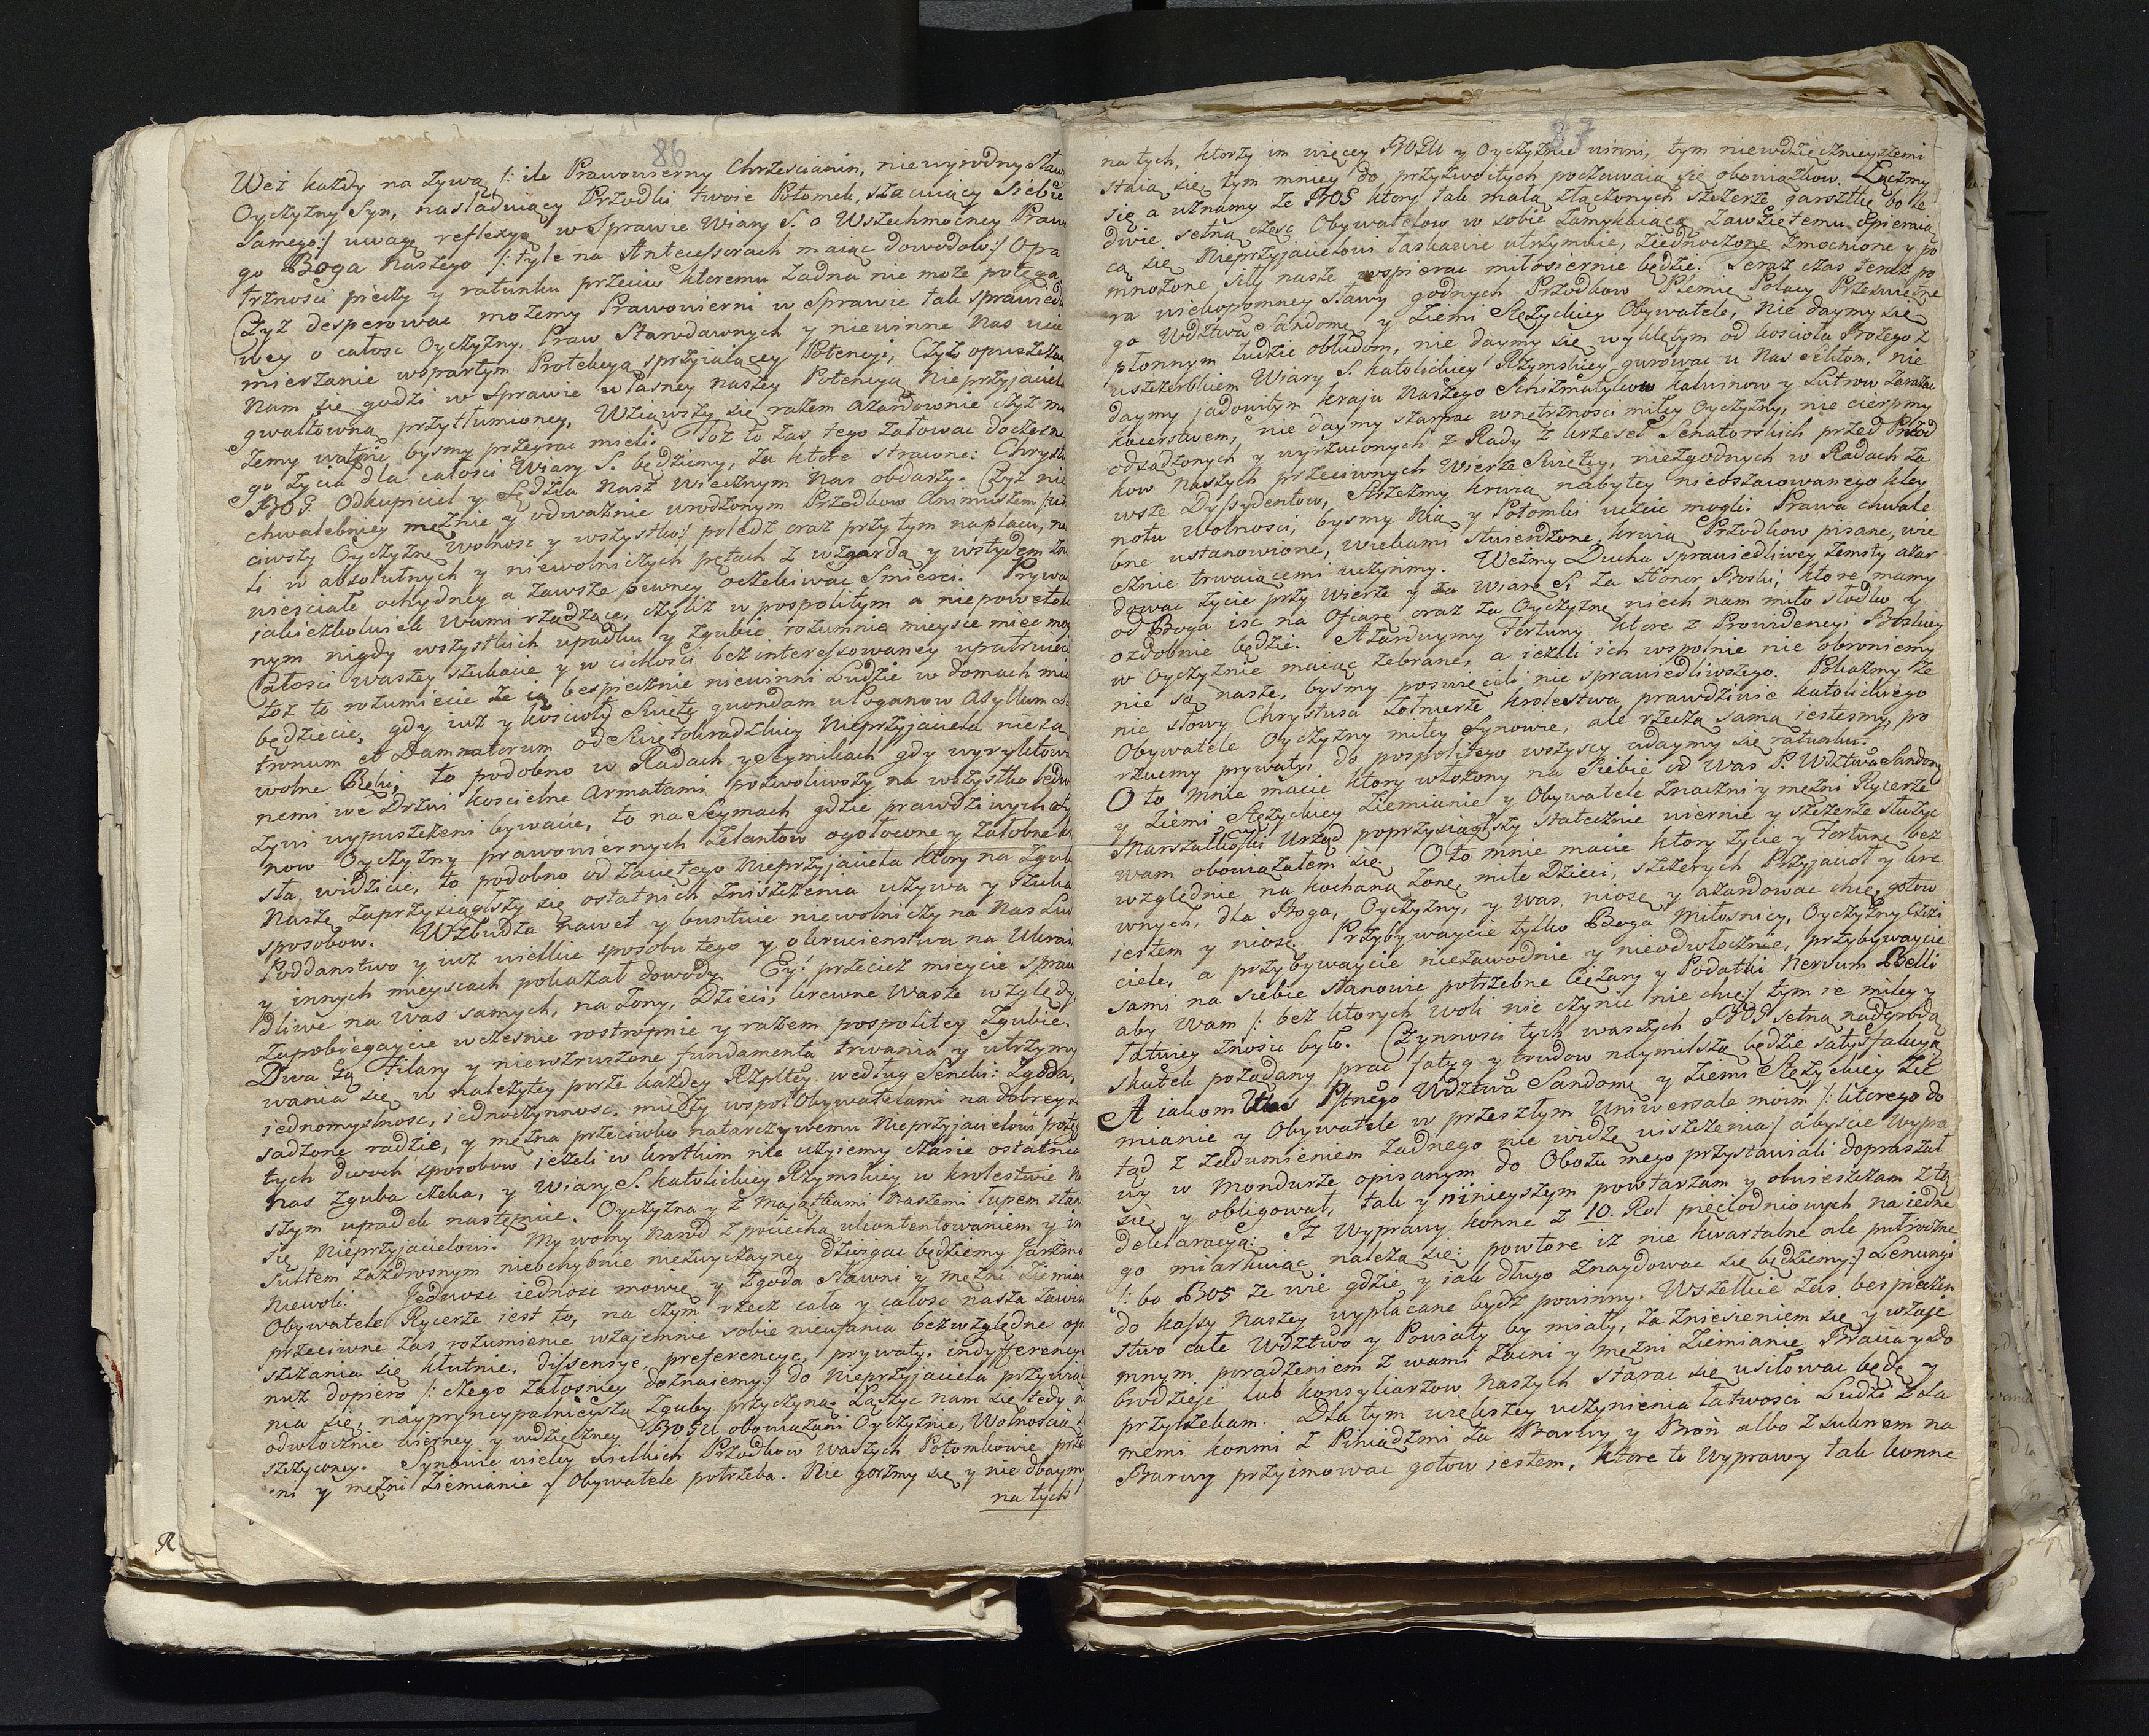 86
Weź każdy na żywą /: ile Prawowierny Chrześcianin, niewyrodny Sław
Oyczyzny Syn, nasladuiący Przodki twoie Potomek, szacuiący Siebie
samego :/ uwagę reflexyą w Sprawie Wiary S. o Wszechmocney Praw
go Boga Naszego /: tyle na Antecessorach maiąc dowodow :/ Opa
trznosci pieczy y ratunku przeciw ktoremu żadna nie może potęga
Czyż desperowac możemy Prawowierni w Sprawie tak sprawied
wey o całosc Oyczyzny. Praw Starodawnych y niewinne Nas
mierzanie wspartym Protekcyą sprzyiaiącey Potencyi, Czyż opuszcza
Nam się godzi w Sprawie własney naszey Potencyą Nieprzyjaciel
gwałtowną przytłumioney, Wziąwszy się razem azardownie czyż mo
żemy wątpic bysmy przegrac mieli. Toż to zas tego żałowac doczesne
go życia dla całosci Wiary S. będziemy, za ktore strawne: Chrystu
BOG Odkupiciel y Sędzia Nasz Wiecznym Nas obdarzy. Czyż nie
chwalebniey mężnie y odważnie wrodzonym Przodkow Animuszem
ciwszy Oyczyznę Wolnosc y wszystko! poledz oraz przy tym na placu, ni
li w absolutnych y niewolniczych pętach z wzgardą y wstydem
niesciale ochydney a zawsze pewney oczekiwac Smierci. Prywa
jakieżkolwiek Wami rządzące, czyliż w pospolitym a niepoweto
nym nigdy wszystkich upadku y zgubie rozumnie mieysce miec mo
Całosci waszey szukacie y w cichosci bezinteressowaney upatruiec
toż to rozumiecie że ią bespiecznie niewinni Ludzie w domach mie
będziecie, gdy iuż y kościoły Święte quondam u Poganow Asyllum
tronum et Damnatorum od Świętokradzkiey Nieprzyjaciela nie są
wolne Ręki, to podobno w Radach y Seymikach gdy
nemi we Drzwi koscielne Armatami pozwoliwszy na wszystko ledw
żywi wypuszczeni bywacie, to na Seymach gdzie prawdziwych Sy
now Oyczyzny prawowiernych Zelantow ogołocone y żałobne
sta, widzicie, to podobno od zawziętego Nieprzyjaciela ktory na Zgub
Naszę zaprzysiągszy się ostatnich zniszczenia używa y szuka
sposobow. Wzbudza nawet y buntuie niewolniczy na Nas Lud
Poddanstwo y iuż wielkie sposobu tego y okrucienstwa na Ukrai
y innych mieyscach pokazał dowody. Ey! przecież mieycie spraw
dliwe na Was samych, na żony, Dzieci, krewne Wasze względy
Zapobiegaycie wczesnie rostropnie y razem pospolitey Zgubie.
Dwa są Filary y niewzruszone fundamenta trwania y utrzymy
wania się w należytey porze każdey Rzpltey według Seneki: Zgoda,
iednomyslnosc, iednoczynnosc, między wspoł Obywatelami na dobrey
sadzone radzie, y mężna przeciwko natarczywemu Nieprzyjacielowi potę
tych dwoch sposobow ieżeli w krotkim nie użyiemy czasie ostatnia
nas Zguba czeka, y Wiary S. katolickiey Rzymskiey w krolestwie Na
szym upadek nastąpnie. Oyczyzna y z Maiątkami Naszemi łupem stan
się Nieprzyjacielowi. My wolny Narod z pociechą ukontentowaniem y in
sultem zazdrosnym nieochybnie niezwyczayney dzwigac będziemy Jarzmo
Niewoli. Jednosc iednosc mowię y Zgoda sławni y mężni Ziemian
Obywatele Rycerze iest to, na czym rzecz cała y całosc nasza zawis
przeciwne zas rozumienie wzajemnie sobie nieufania bezwzględne op
szczania się kłutnie, dissensye, preferencye, prywaty, indyfferency
nuż dopiero /: czego żałosniey doznaiemy :/ do Nieprzyjaciela przywią
nia się, nayprincypalnieysza Zguby przyczyna. Łączyc nam się tedy
odwłocznie wierney y wdzięczney BOGU obowiązani Oyczyznie, Wolnoscią
szczyconey. Synowie wielcy wielkich Przodkow waszych Potomkowie prze
ni y mężni Ziemianie y Obywatele potrzeba. Nie gorszmy się y nie dbaymy
na tych
R
87
na tych, ktorzy im więcey BOGU y Oyczyznie winni, tym niewdzięcznieyszemi
staią się, tym mniey do przyzwoitych poczuwaią się obowiązkow. Łączmy
się a uznamy że BOG ktory tak małą złączonych szczerze garsztkę bo le
dwie setną częsc Obywatelow w sobie zamykaiącą zawziętemu opieraią
cą się Nieprzyjacielowi łaskawie utrzymuie, ziednoczone zmocnione y po
mnożone siły nasze wspierac miłosiernie będzie. Teraz czas teraz po
ra wiekopomney sławy godnych Przodkow Plemie Polacy Przeswietne
go Wdztwa Sandomę y Ziemi Stężyckiey Obywatele, nie daymy się
płonnym łudzic obłudom, nie daymy się wyklętym od kościoła Bożego z
uszczerbkiem Wiary S. katolickiey Rzymskiey gurowac u Nas Sektom, nie
daymy jadowitym kraju Naszego Schizmatykow kalwinow y Lutrow zarażac
kacerstwem, nie daymy szarpac wnętrznosci miłey Oyczyzny, nie cierpmy
odsadzonych y wyrzuconych z Rady z krzeseł Senatorskich przed Przod
kow Naszych przeciwnych Wierze Swiętey, niezgodnych w Radach za
wsze Dyssydentow, Strzeżmy krwią nabytey nieoszacowanego kley
notu Wolnosci, bysmy Nią y Potomki uczcic mogli. Prawa chwale
bne ustanowione, wiekami stwierdzone, krwią Przodkow pisane, wie
cznie trwaiącemi uczynmy. Weźmy Ducha sprawiedliwey zemsty azar
dowac życie przy wierze y za Wiarę S. za Honor Boski, ktore mamy
od Boga isc na Ofiarę oraz za Oyczyznę niech nam miło słodko y
ozdobnie będzie. Azarduymy Fortuny ktore z Prowidencyi Boskiey
w Oyczyznie maiąc zebrane, a ieżeli ich wspolnie nie obroniemy
nie są nasze, bysmy poswięcili nic sprawiedliwszego. Pokażmy że
nie słowy Chrystusa Zołnierze krolestwa prawdziwie katolickiego
Obywatele Oyczyzny miłey Synowie, ale rzeczą samą iestesmy, po
rzucmy prywaty, do pospolitego wszyscy udaymy się ratunku.
O to mnie macie ktory włożony na Siebie od Was P. Wdztwa Sandomę
y Ziemi Stężyckiey Ziemianie y Obywatele Znaczni y mężni Rycerze
Marszałkoski Urząd poprzysiągłszy statecznie wiernie y szczerze służyc
wam obowiązałem się. O to mnie macie ktory życie y Fortunę bez
względnie na kochaną żonę, miłe Dzieci, szczerych Przyjacioł y kre
wnych, dla Boga, Oyczyzny, y was, niosę y azardowac chcę, gotow
iestem y niosę. Przybywaycie tylko Boga Miłosnicy, Oyczyzny Czci
ciele, a przybywaycie niezawodnie y nieodwłocznie, przybywaycie
sami na siebie stanowic potrzebne Ciężary y Podatki Nervum Belli
aby Wam /: bez ktorych woli nic czynic nie chcę :/ tym ie miley y
łatwiey znosic było. Czynnosci tych waszych BOG setną nadgrodą
skutek pożądany prac fatyg y trudow naymilszą będzie satysfakcyą
A iakom Was Pstnego Wdztwa Sandomę y Ziemi Stężyckiey Zie
mianie y Obywatele w przeszłym Uniwersale moim /: ktorego do
tąd z zadumieniem żadnego nie widzę uiszczenia :/ abyscie Wypra
wy w Mondurze opisanym do Obozu mego przystawiali dopraszał
się y obligował, tak y ninieyszym powtarzam y obwieszczam z tą
deklaracyą: Iż Wyprawy konne z 10. Rol pięciodniowych na iedne
go miarkuiąc należą się: powtore iż nie kwartalne ale pułroczne
/: bo BOG że wie gdzie y iak długo znaydowac się będziemy :/ Lenungi
do kassy Naszey wypłacane bydź powinny. Wszelkie zas bespieczen
stwo całe Wdztwo y Powiaty by miały, za zniesieniem się y wzaje
mnym poradzeniem z wami zacni y mężni Ziemianie, Bracia y Do
brodzieje lub konsyliarzow Naszych starac się usiłowac będę y
przyrzekam. Dla tym większey uczynienia łatwosci Ludzi z sa
memi konmi z Piniądzmi za Barwy y Broń albo z suknem na
Barwy przyimowac gotow iestem, ktore to Wyprawy tak konne